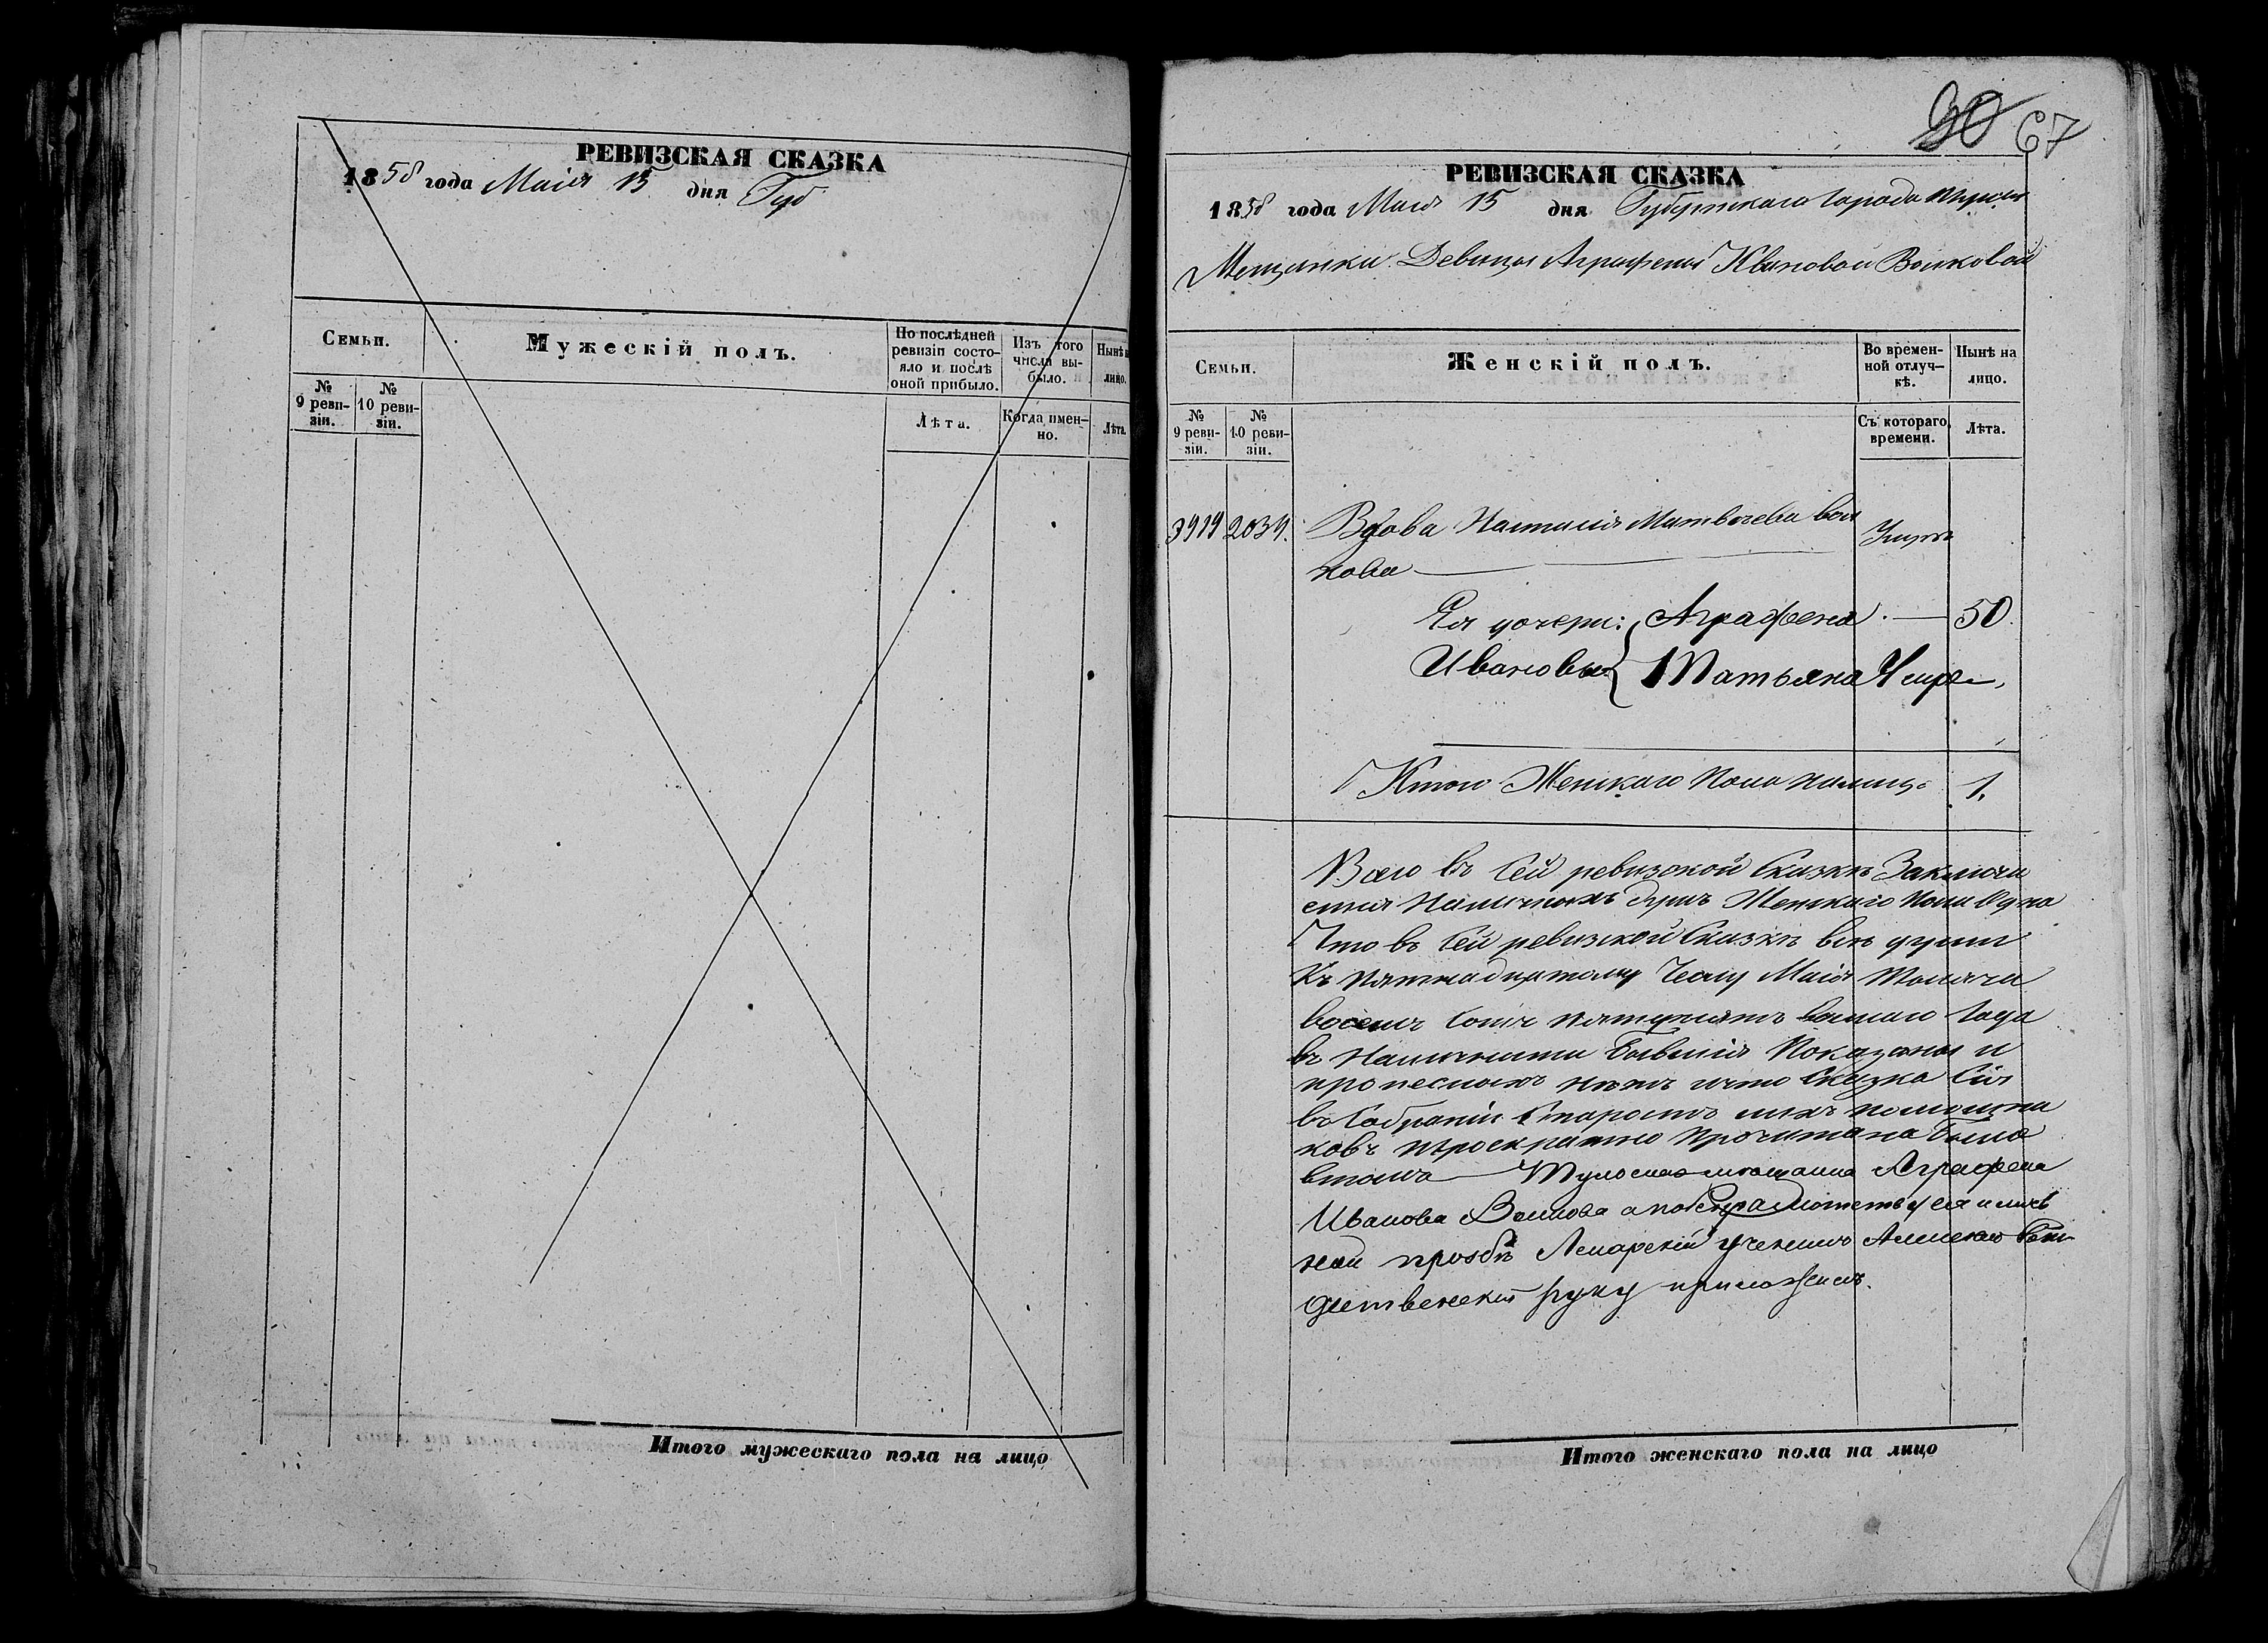 РЕВИЗСКАЯ СКАЗКА
1858 года Маія 15 дня Губ
Семьи.
Мужескій полъ.
По послѣдней ревизіи состо-
яло и послѣ оной прибыло.
Изъ того числа вы-
было.
Нынѣ н
лицо.
№ 9 реви-
зіи.
№ 10 реви-
зіи.
Лѣта.
Когда имен-
но.
Лѣта.
Итого мужескаго пола на лицо
90 67
РЕВИЗСКАЯ СКАЗКА
1858 года Маія 15 дня Губернскаго города Тулы
Мещанки Девицы Аграфены Ивановой Волковой
Семьи.
Женскій полъ.
Во времен-
ной отлуч-
кѣ.
Нынѣ на
лицо.
№ 9 реви-
зіи.
№ 10 реви-
зіи.
Съ котораго времени.
Лѣта.
2034. Вдова Матвѣева Вол
кова
Ея дочери: Аграфена 50
Ивановы Татьяна
Итого Женскаго Пола налицо 1.
Всего въ Сей ревизской Сказкѣ Заключа
ется Наличныхъ душъ Женскаго пола Одна
Что въ Сей ревизской Сказкѣ всѣ души
Къ пятнадцатому Числу Маія Тысяча
восемь Сотъ пятдесятъ восмаго Года
въ Наличности бывшія Показаны и
прописныхъ нѣтъ и что Сказка Сія
въ Собраніи Старостъ и ихъ помощни
ковъ троекратно прочитана была
втомъ Тульская мещанка Аграфена
Иванова Волкова а по безграмотству ея и лич
ной прозбѣ ученикъ Алексей
руку приложилъ.
Итого женскаго пола на лицо